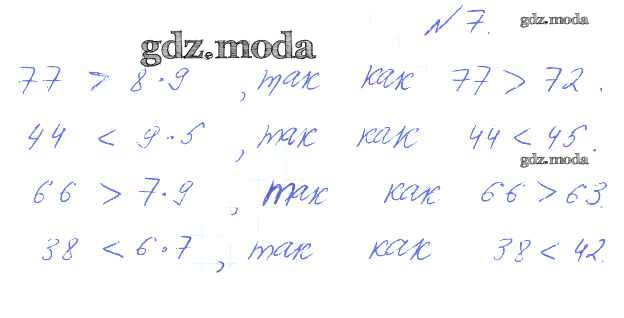 №7. gdz.moda
gdz.moda
77 > 8·9, так как 77 > 72.
44 < 9·5, так как 44 < 45.
gdz.moda
66 > 7·9, так как 66 > 63.
38 < 6·7, так как 38 < 42.